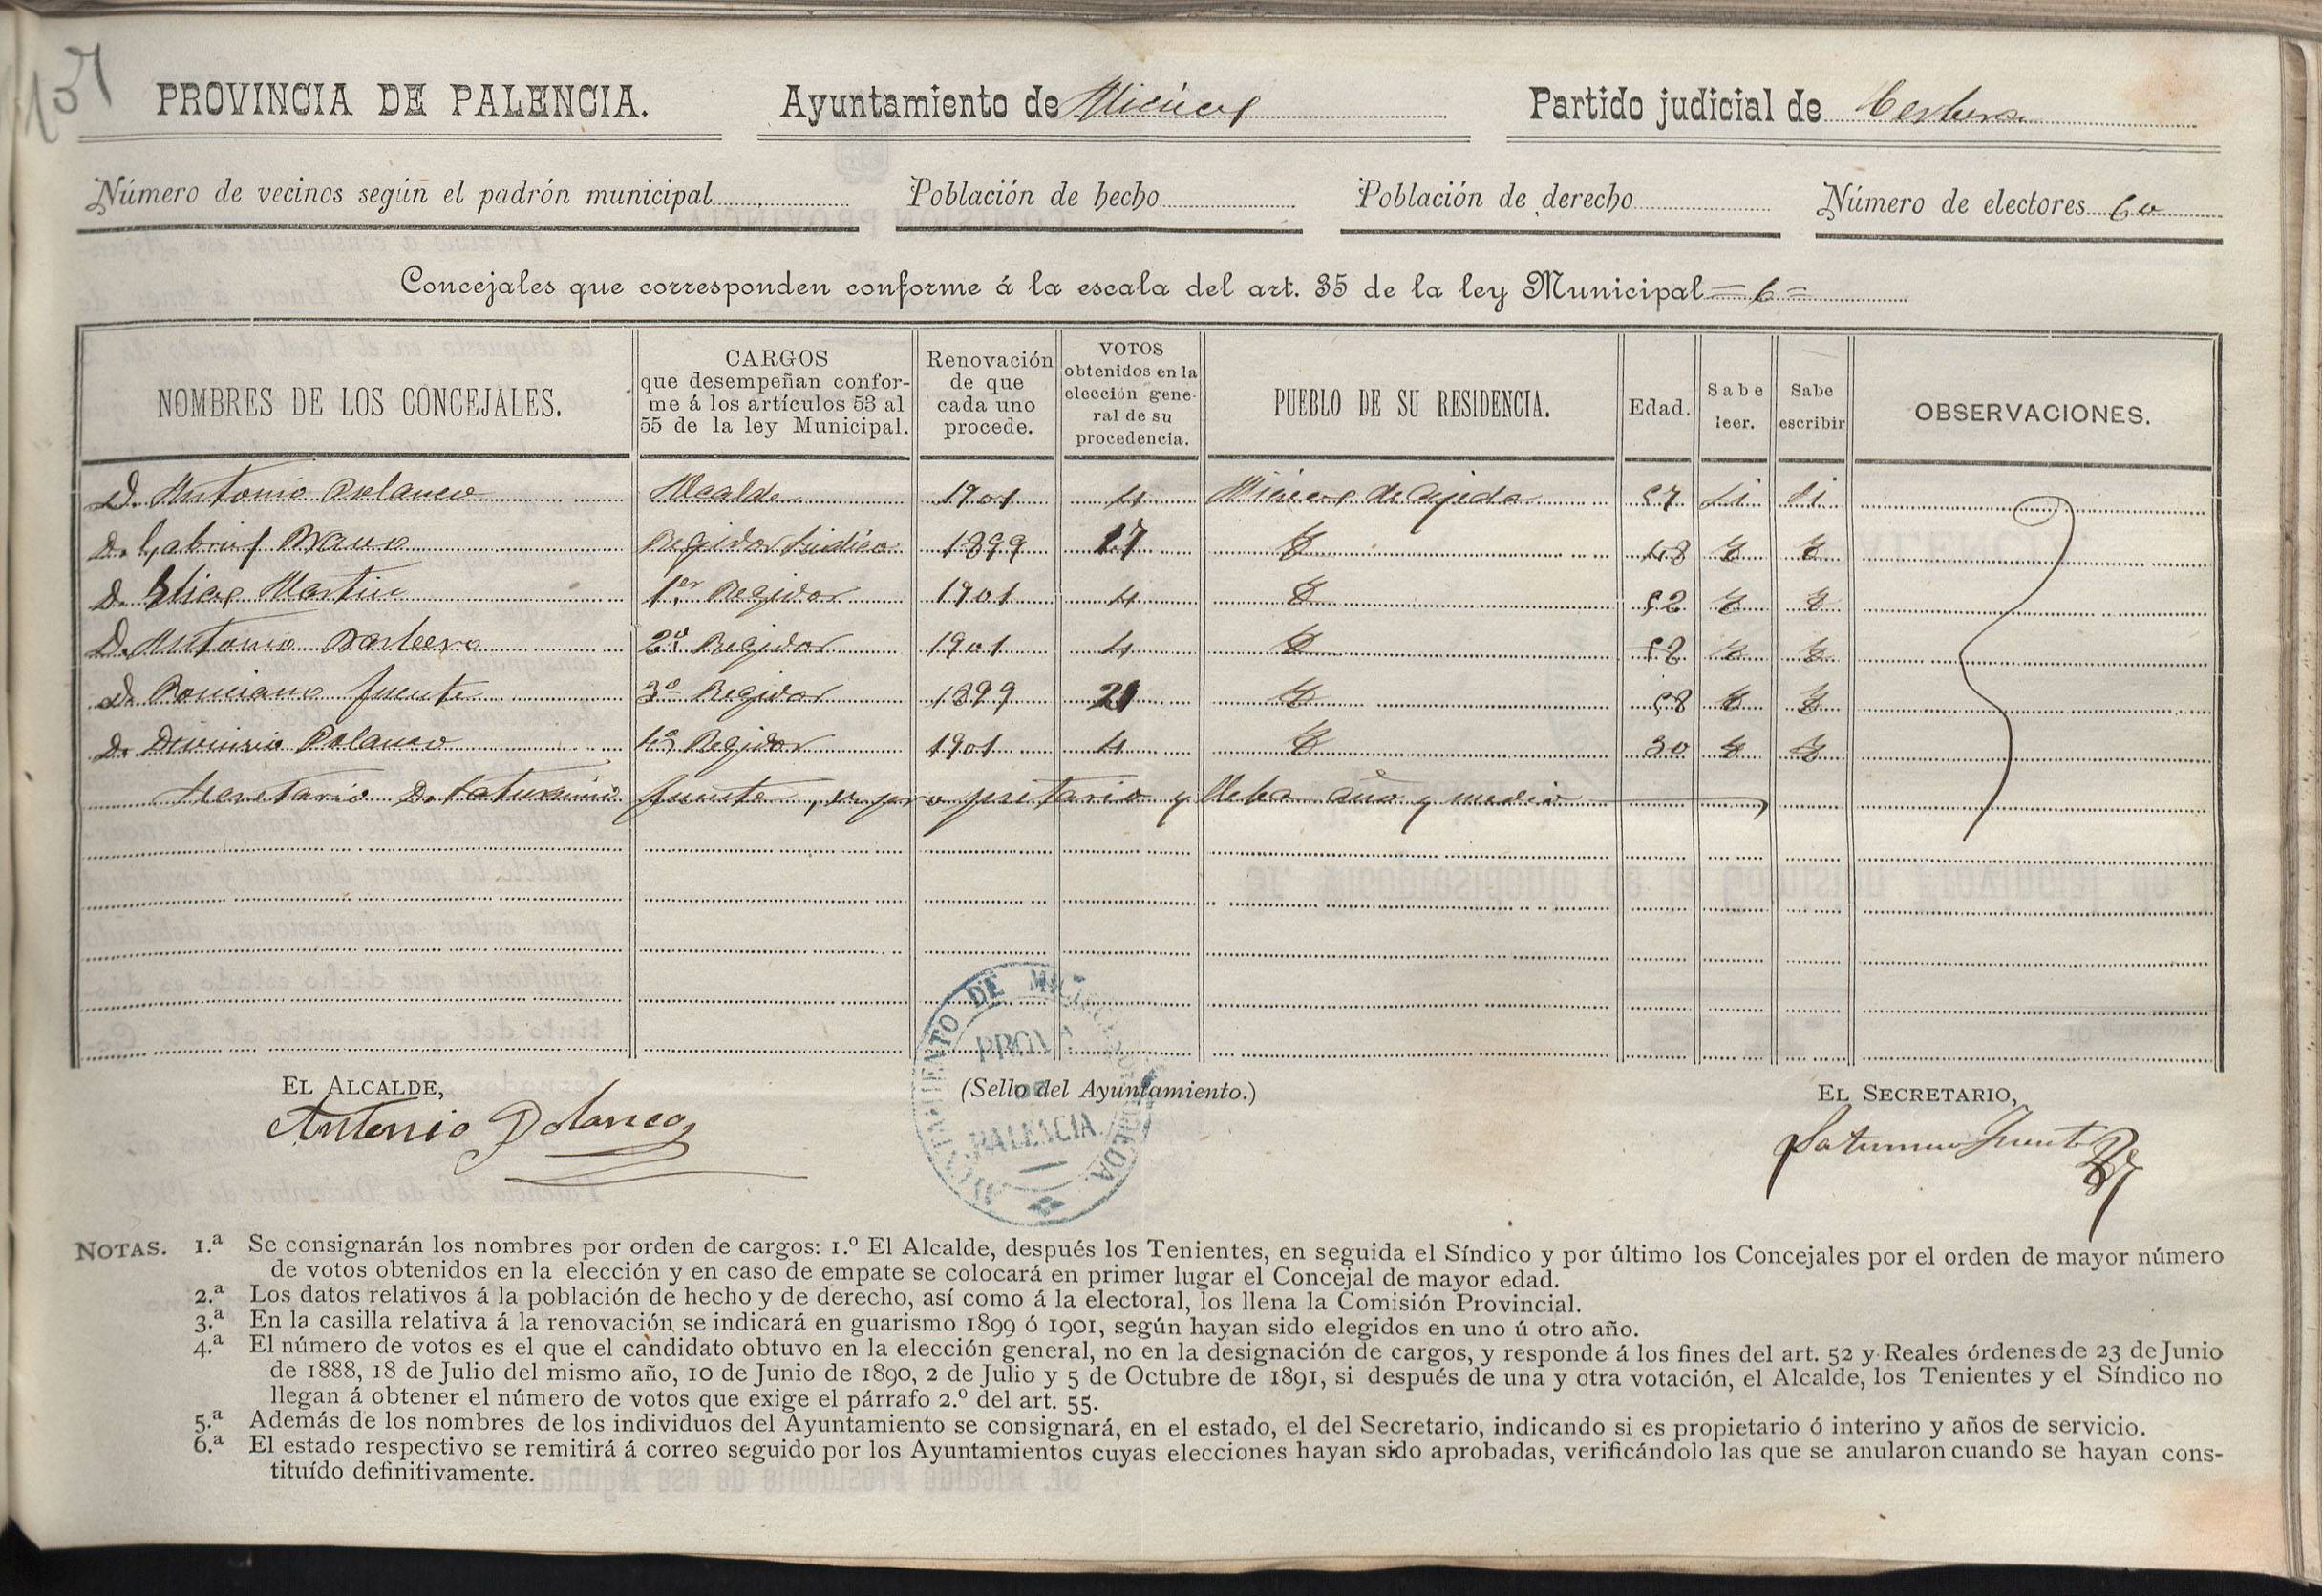 137
PROVINCIA DE PALENCIA. Ayuntamiento de Micieces Partido judicial de Cerbera
Número de vecinos según el padrón municipal Población de hecho Población de derecho Número de electores 60
Concejales que corresponden conforme á la escala del art. 35 de la ley Municipal = 6 =
NOMBRES DE LOS CONCEJALES. CARGOS que desempeñan conforme á los artículos 53 al 55 de la ley Municipal. Renovación de que cada uno procede. VOTOS obtenidos en la elección general de su procedencia. PUEBLO DE SU RESIDENCIA. Edad. Sabe leer. Sabe escribir OBSERVACIONES.
D. Antonio Polanco Alcalde 1901 4 Micieces de Ojeda 57 Si Si
D. Gabriel Bravo Regidor Sindico 1899 17 48
D. Elias Martin 1er Regidor 1901 4 52
D. Antonio Barbero 2º Regidor 1901 4 52
D. Ponciano fuente 3º Regidor 1899 21 58
D. Dionisio Polanco 4º Regidor 1901 4 30
Secretario D. Saturnino fuente, es propietario y lleba año y medio
EL ALCALDE, (Sello del Ayuntamiento.) EL SECRETARIO,
Antonio Polanco Saturnino Fuente
AYUNTAMIENTO DE MICIECES DE OJEDA
PROVA
DE
PALENCIA
NOTAS. 1.ª Se consignarán los nombres por orden de cargos: 1.º El Alcalde, después los Tenientes, en seguida el Síndico y por último los Concejales por el orden de mayor número
de votos obtenidos en la elección y en caso de empate se colocará en primer lugar el Concejal de mayor edad.
2.ª Los datos relativos á la población de hecho y de derecho, así como á la electoral, los llena la Comisión Provincial.
3.ª En la casilla relativa á la renovación se indicará en guarismo 1899 ó 1901, según hayan sido elegidos en uno ú otro año.
4.ª El número de votos es el que el candidato obtuvo en la elección general, no en la designación de cargos, y responde á los fines del art. 52 y Reales órdenes de 23 de Junio
de 1888, 18 de Julio del mismo año, 10 de Junio de 1890, 2 de Julio y 5 de Octubre de 1891, si después de una y otra votación, el Alcalde, los Tenientes y el Síndico no
llegan á obtener el número de votos que exige el párrafo 2.º del art. 55.
5.ª Además de los nombres de los individuos del Ayuntamiento se consignará, en el estado, el del Secretario, indicando si es propietario ó interino y años de servicio.
6.ª El estado respectivo se remitirá á correo seguido por los Ayuntamientos cuyas elecciones hayan sido aprobadas, verificándolo las que se anularon cuando se hayan cons-
tituído definitivamente.